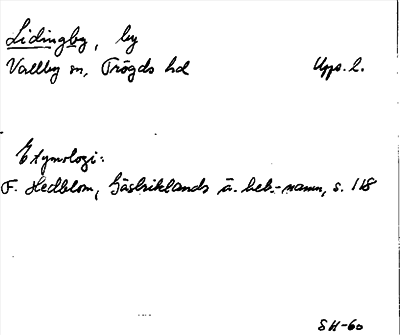 Lidingby, by
Vallby sn, Trögds hd Upps. l.
Etymologi:
F. Hedblom, Gästriklands ä. beb.-namn, s. 118
SH-60